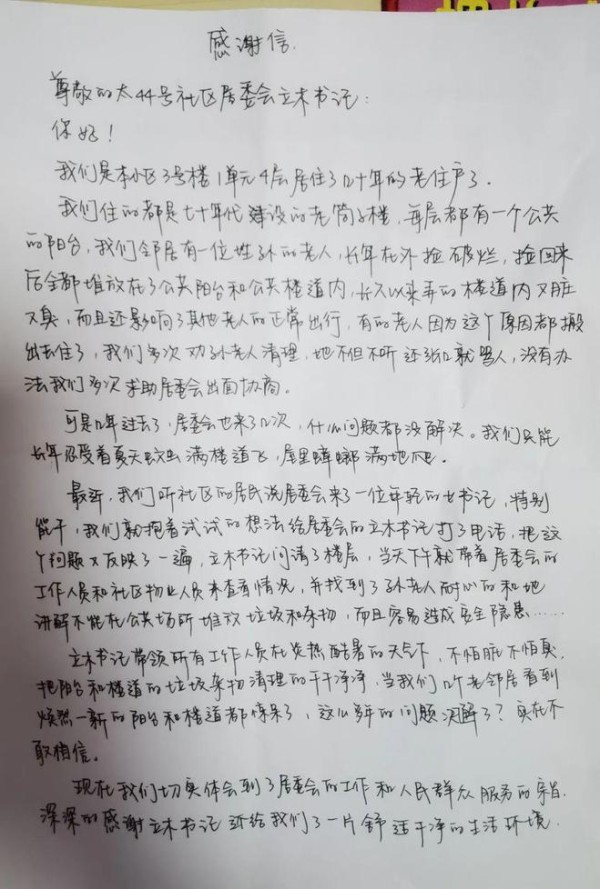 感谢信.
尊敬的太44号社区居委会立木书记:
你好!
我们是本小区3号楼1单元4层居住了几十年的老住户了.
我们住的都是七十年代建设的老筒子楼,每层都有一个公共
的阳台,我们邻居有一位姓孙的老人,长年在外捡破烂,捡回来
后全都堆放在了公共阳台和公共楼道内,长久以来弄的楼道内又脏
又臭,而且还影响了其他老人的正常出行,有的老人因为这个原因都搬
出去住了,我们多次劝孙老人清理,她不但不听还张口就骂人,没有办
法我们多次求助居委会出面协商。
可是几年过去了,居委会也来了几次,什么问题都没解决。我们只能
长年忍受着夏天蚊虫满楼道飞,屋里蟑螂满地爬。
最近,我们听社区的居民说居委会来了一位年轻的女书记,特别
能干,我们就抱着试试的想法给居委会的立木书记打了电话,把这
个问题又反映了一遍,立木书记问请了楼层,当天下午就带着居委会的
工作人员和社区物业人员来查看情况,并找到了孙老人耐心的和她
讲解不能在公共场所堆放垃圾和杂物,而且容易造成安全隐患……
立木书记带领所有工作人员在炎热酷暑的天气下,不怕脏不怕臭,
把阳台和楼道的垃圾杂物清理的干干净净,当我们几个老邻居看到
焕然一新的阳台和楼道都惊呆了,这么多年的问题解决了?实在不
敢相信。
现在我们切实体会到了居委会的工作和人民群众服务的宗旨.
深深的感谢立木书记还给我们了一片舒适干净的生活环境.